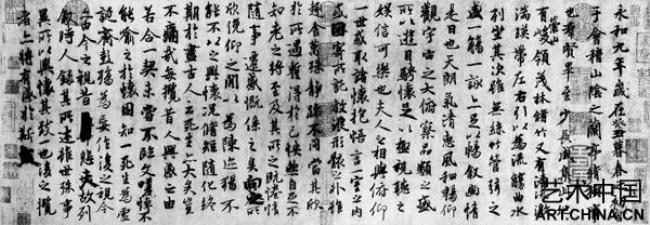 永和九年歲在癸丑暮春之初會
于會稽山陰之蘭亭脩稧事
也羣賢畢至少長咸集此地
有崇山峻領茂林脩竹又有清流激
湍暎帶左右引以為流觴曲水
列坐其次雖無絲竹管弦之
盛一觴一詠亦足以暢敘幽情
是日也天朗氣清惠風和暢仰
觀宇宙之大俯察品類之盛
所以遊目騁懷足以極視聽之
娛信可樂也夫人之相與俯仰
一世或取諸懷抱悟言一室之內
或因寄所託放浪形骸之外雖
趣舍萬殊靜躁不同當其欣
於所遇暫得於己怏然自足不
知老之將至及其所之既惓情
隨事遷感慨係之矣向之所
欣俛仰之間以為陳迹猶不
能不以之興懷況脩短隨化終
期於盡古人云死生亦大矣豈
不痛哉每攬昔人興感之由
若合一契未嘗不臨文嗟悼不
能喻之於懷固知一死生為虛
誕齊彭殤為妄作後之視今
亦由今之視昔悲夫故列
敘時人錄其所述雖世殊事
異所以興懷其致一也後之攬
者亦將有感於斯文
艺术中国
ART.CHINA.CN